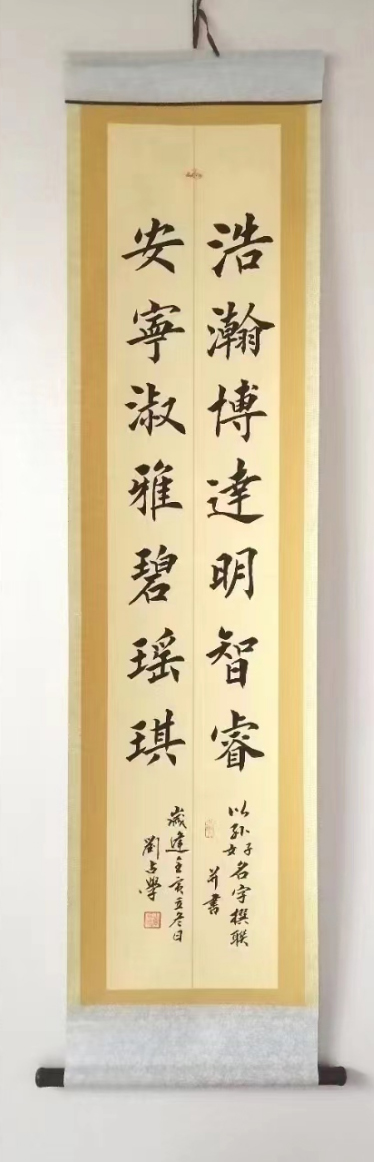 浩瀚博達明智睿
以孙子女名字撰联
并書
安寧淑雅碧瑶琪
歲逢壬寅立冬日
劉占學